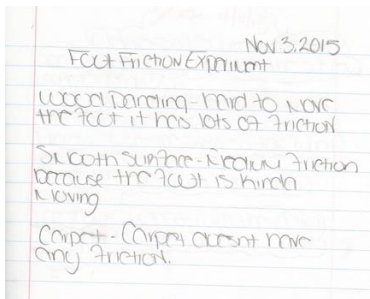 Nov 3, 2015
Foot Friction Experiment
Wood Paneling - hard to move
the foot it has lots of friction
Smooth Surface - Medium friction
because the foot is kinda
Moving
Carpet - Carpet doesnt have
any friction.